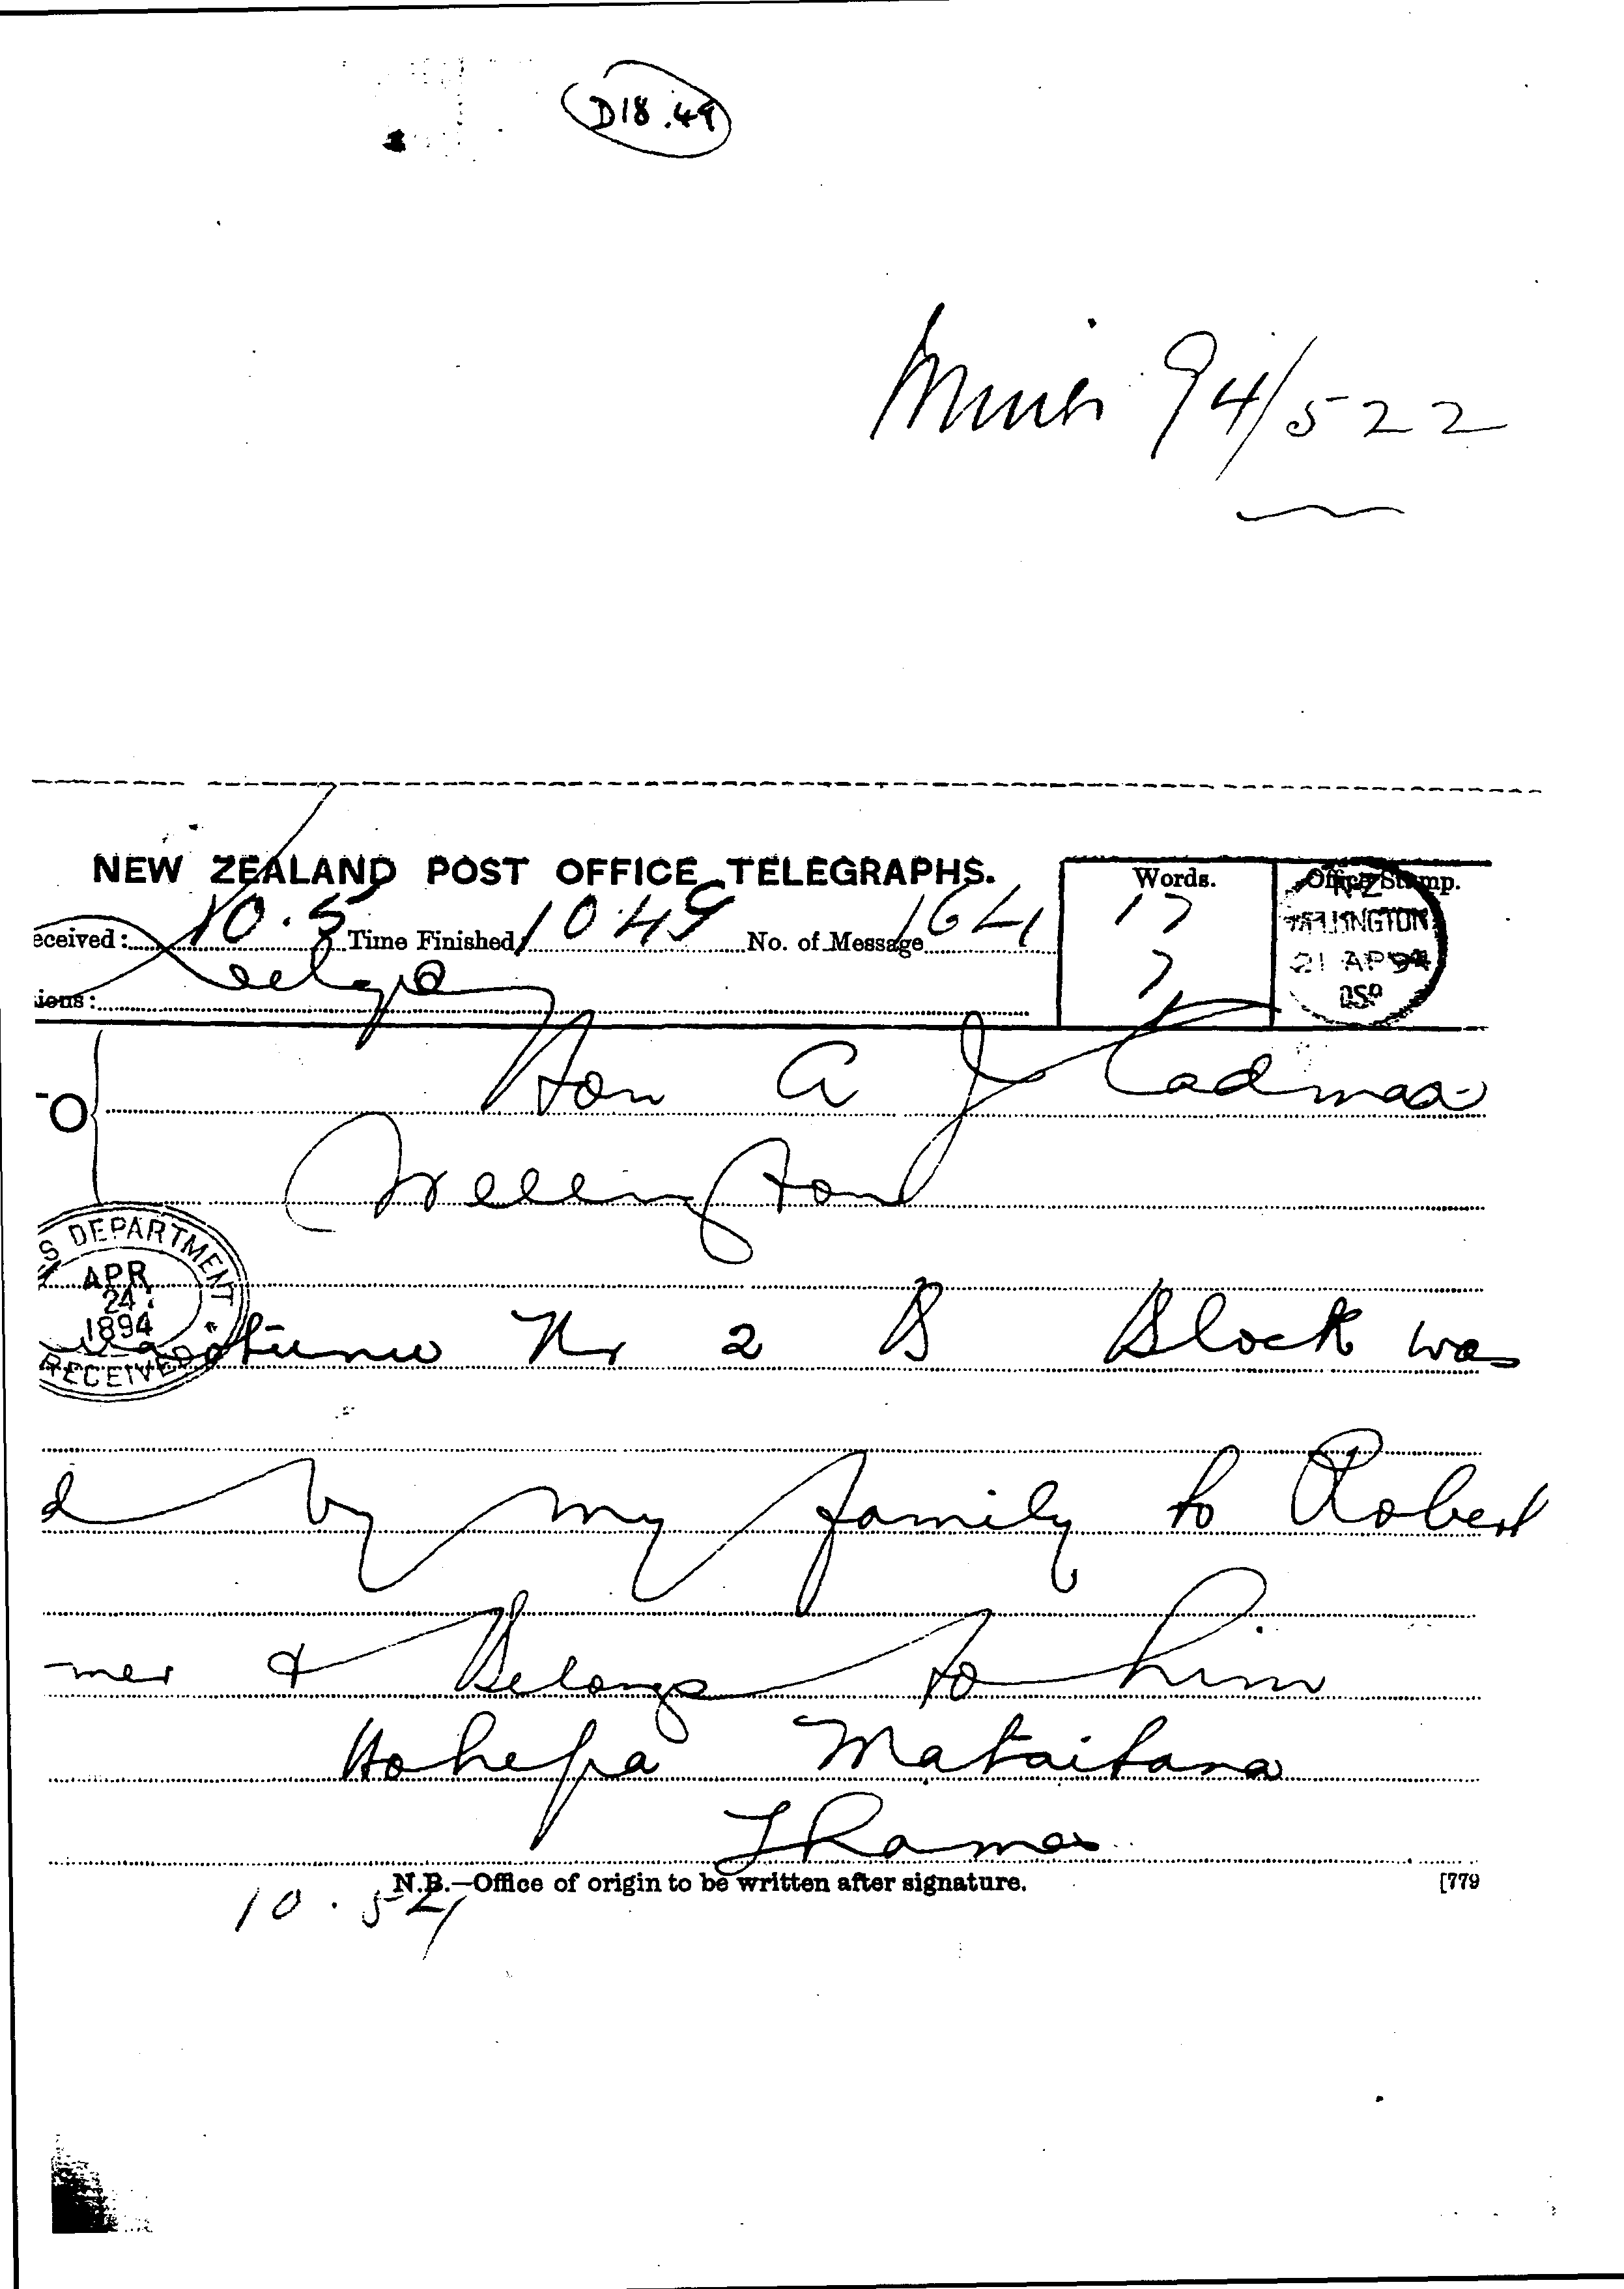 D18.49
94/522
NEW ZEALAND POST OFFICE TELEGRAPHS.
Words.
Office Stamp.
eceived: 10.5 Time Finished 10 49 No. of Message 164
17
7
NZ
WELLINGTON
21 AP 94
ions:
O
Hon A J Cadman
Wellington
S DEPARTMENT
APR
24
1894
RECEIVED
Nr 2 B Block was
d by my family to Robert
mer & Belongs to him
Hohepa Mataitana
Thames
N.B.—Office of origin to be written after signature.
[779
10.54